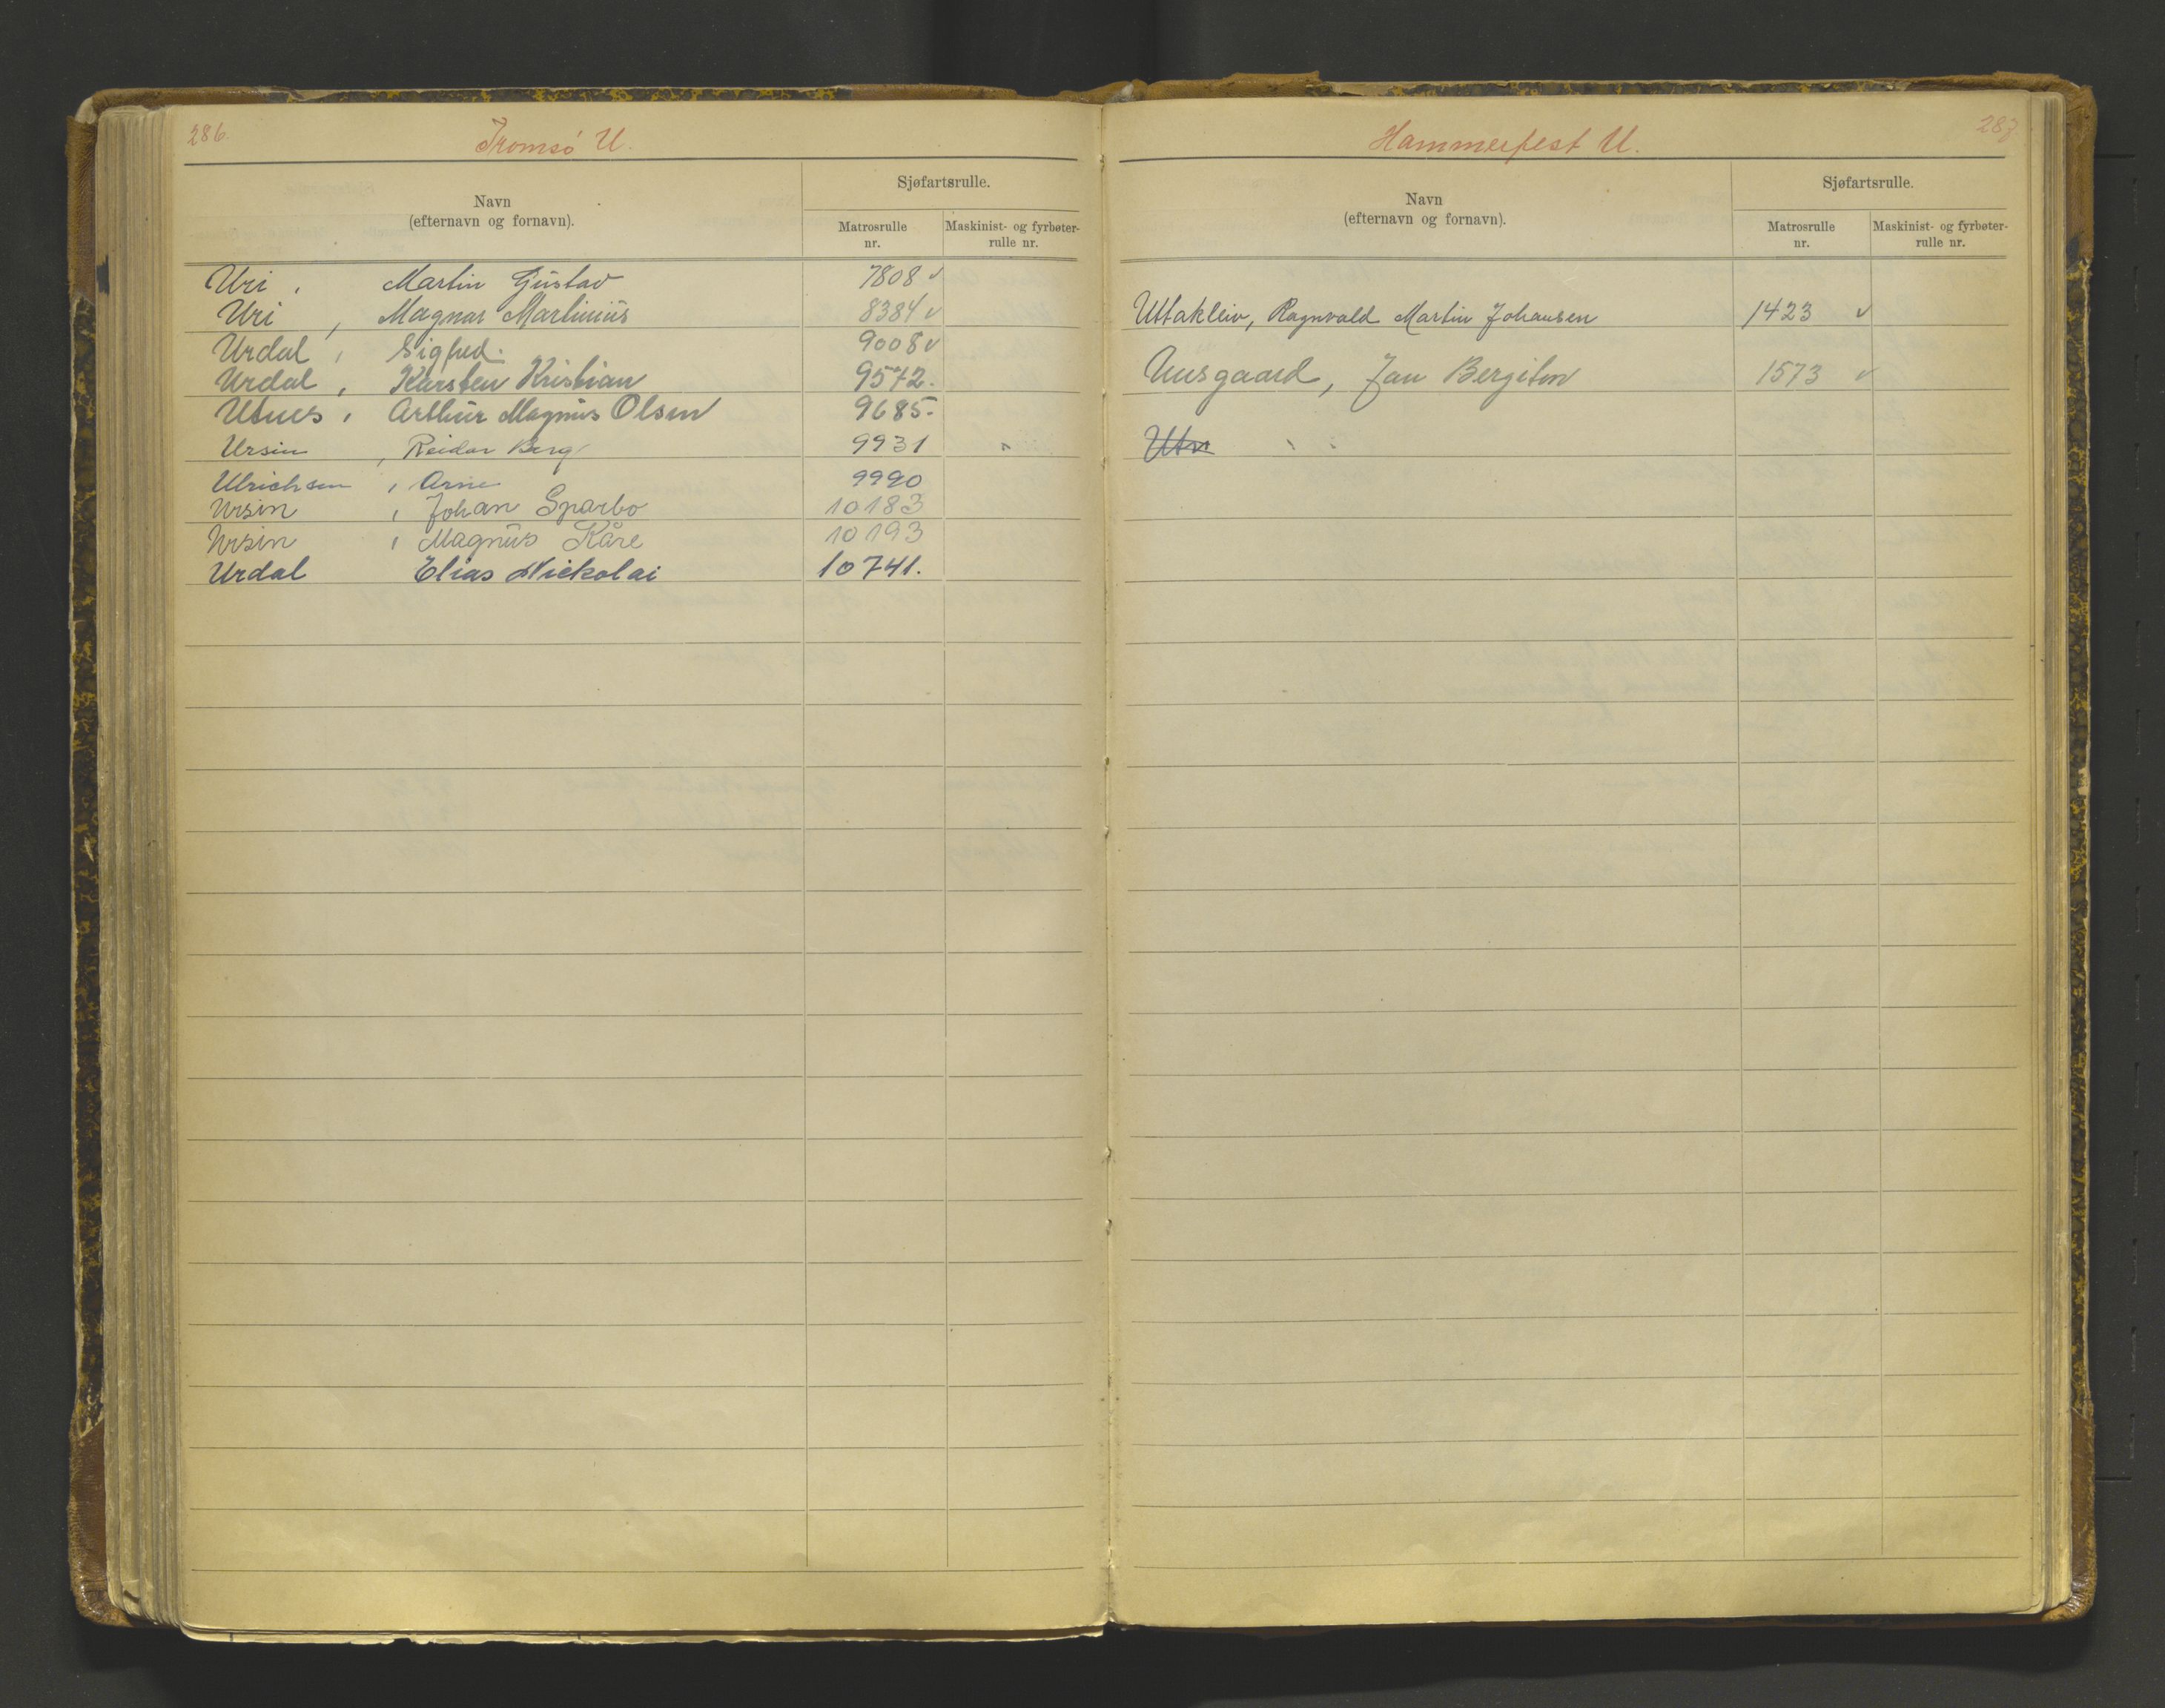 286.
Tromsø U.
Navn
(efternavn og fornavn).
Sjøfartsrulle.
Matrosrulle
nr.
Maskinist- og fyrbøter-
rulle nr.
Uri , Martin Gustav 7808 ✓
Uri , Magnar Martinius 8384 ✓
Urdal , Sigfred. 9008 ✓
Urdal , Karsten Kristian 9572.
Utnes , Arthur Magnus Olsen 9685.
Ursin , Reidar Berg 9931
Ulrichsen , Arne 9990
Ursin , Johan Sparbo 10183
Ursin , Magnus Kåre 10193
Urdal Elias Nickolai 10741.
287.
Hammerfest U.
Navn
(efternavn og fornavn).
Sjøfartsrulle.
Matrosrulle
nr.
Maskinist- og fyrbøter-
rulle nr.
Uttakleiv, Ragnvald Martin Johansen 1423 ✓
Uusgaard, Jan Bergiton 1573 ✓